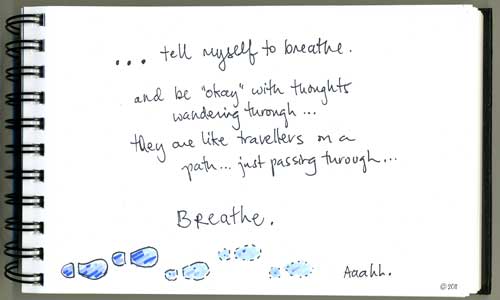 ... tell myself to breathe.
and be "okay" with thoughts
wandering through...
they are like travellers on a
path... just passing through...
Breathe.
Aaahh.
© 2011